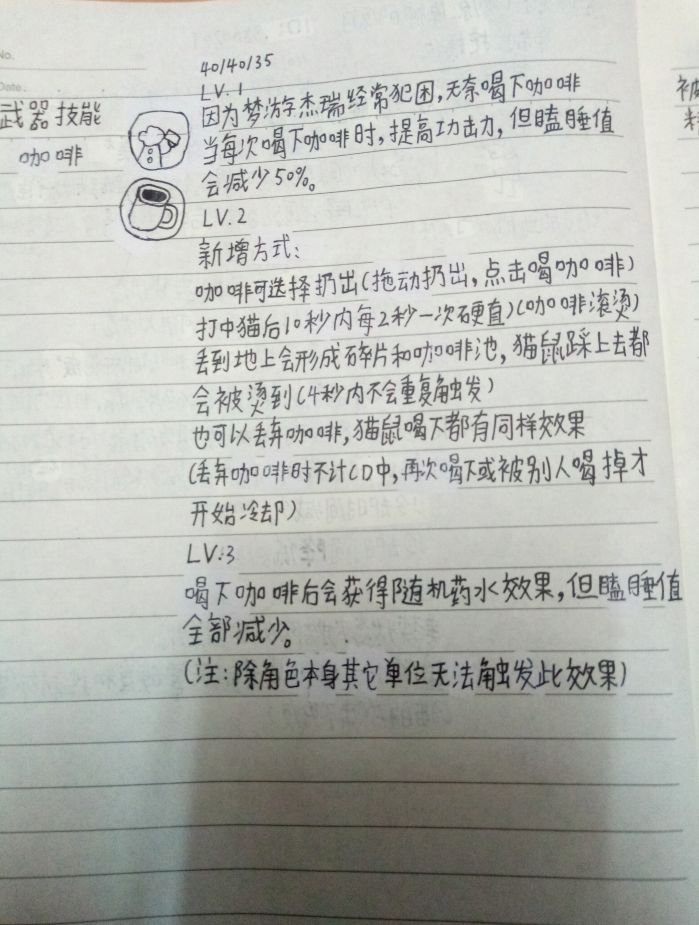 No.
Date.
武器技能
咖啡
40/40/35
LV.1
因为梦游杰瑞经常犯困,无奈喝下咖啡
当每次喝下咖啡时,提高功击力,但瞌睡值
会减少50%。
LV.2
新增方式:
咖啡可选择扔出(拖动扔出,点击喝咖啡)
打中猫后10秒内每2秒一次硬直)(咖啡滚烫)
丢到地上会形成碎片和咖啡池,猫鼠踩上去都
会被烫到(4秒内不会重复触发)
也可以丢弃咖啡,猫鼠喝下都有同样效果
(丢弃咖啡时不计CD中,再次喝下或被别人喝掉才
开始冷却)
LV.3
喝下咖啡后会获得随机药水效果,但瞌睡值
全部减少。
(注:除角色本身其它单位无法触发此效果)
被